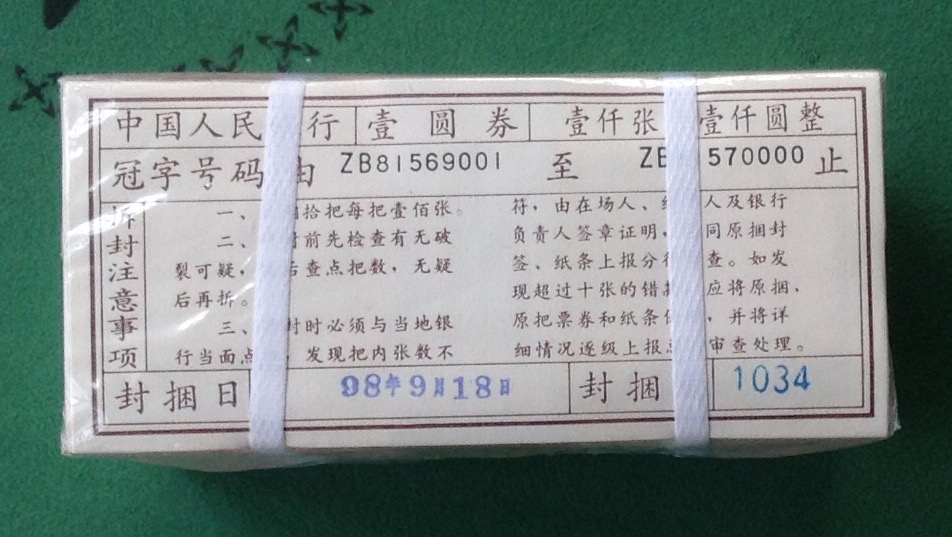 中国人民 行 壹圆券 壹仟张 壹仟圆整
冠字号码 由 ZB81569001 至 ZB 570000 止
拆封注意事项
一、 拾把每把壹佰张。
二、 封前先检查有无破
裂可疑, 后查点把数,无疑
后再拆。
三、 封时必须与当地银
行当面点 ,发现把内张数不
符,由在场人、 人及银行
负责人签章证明, 同原捆封
签、纸条上报分行 查。如发
现超过十张的错款 应将原捆、
原把票券和纸条 ,并将详
细情况逐级上报 审查处理。
封捆日 98年9月18日 封捆 1034